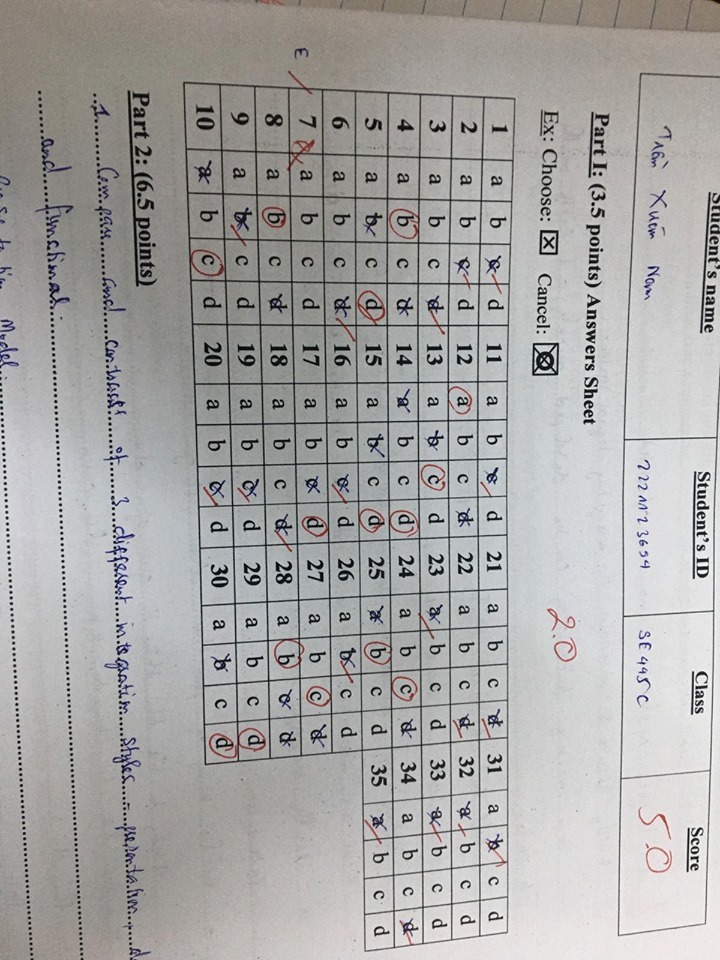 Student's name Student's ID Class Score
Trần Xuân Nam 2221123654 SE445C 5.0
Part I: (3.5 points) Answers Sheet
2.0
Ex: Choose: Cancel:
1 a b c d 11 a b c d 21 a b c d 31 a b c d
2 a b c d 12 a b c d 22 a b c d 32 a b c d
3 a b c d 13 a b c d 23 a b c d 33 a b c d
4 a b c d 14 a b c d 24 a b c d 34 a b c d
5 a b c d 15 a b c d 25 a b c d 35 a b c d
6 a b c d 16 a b c d 26 a b c d
E 7 a b c d 17 a b c d 27 a b c d
8 a b c d 18 a b c d 28 a b c d
9 a b c d 19 a b c d 29 a b c d
10 a b c d 20 a b c d 30 a b c d
Part 2: (6.5 points)
1 Compare and contrast of 3 different integration styles - presentation, d
and functional.
Model